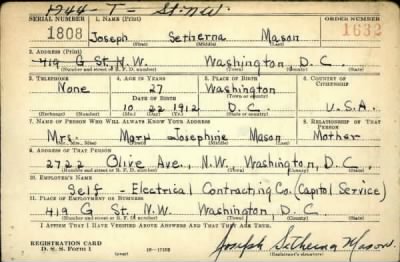 1744 - T - St. N.W.
SERIAL NUMBER 1. NAME (Print) ORDER NUMBER
1808 Joseph Setherna Mason 1632
(First) (Middle) (Last)
2. ADDRESS (Print)
419 G St. N.W. Washington, D. C.
(Number and street or R. F. D. number) (Town) (County) (State)
3. TELEPHONE 4. AGE IN YEARS 5. PLACE OF BIRTH 6. COUNTRY OF CITIZENSHIP
None 27 Washington
(Town or county)
DATE OF BIRTH
10 22 1912 D. C. U.S.A.
(Exchange) (Number) (Mo.) (Day) (Yr.) (State or country)
7. NAME OF PERSON WHO WILL ALWAYS KNOW YOUR ADDRESS 8. RELATIONSHIP OF THAT PERSON
Mrs. Mary Josephine Mason Mother
(Mr., Mrs., Miss) (First) (Middle) (Last)
9. ADDRESS OF THAT PERSON
2722 Olive Ave., N.W., Washington, D. C.
(Number and street or R. F. D. number) (Town) (County) (State)
10. EMPLOYER'S NAME
Self - Electrical Contracting Co. (Capitol Service)
11. PLACE OF EMPLOYMENT OR BUSINESS
419 G St. N.W. Washington, D. C
(Number and street or R. F. D. number) (Town) (County) (State)
I AFFIRM THAT I HAVE VERIFIED ABOVE ANSWERS AND THAT THEY ARE TRUE.
REGISTRATION CARD
D. S. S. Form 1 Joseph Setherna Mason